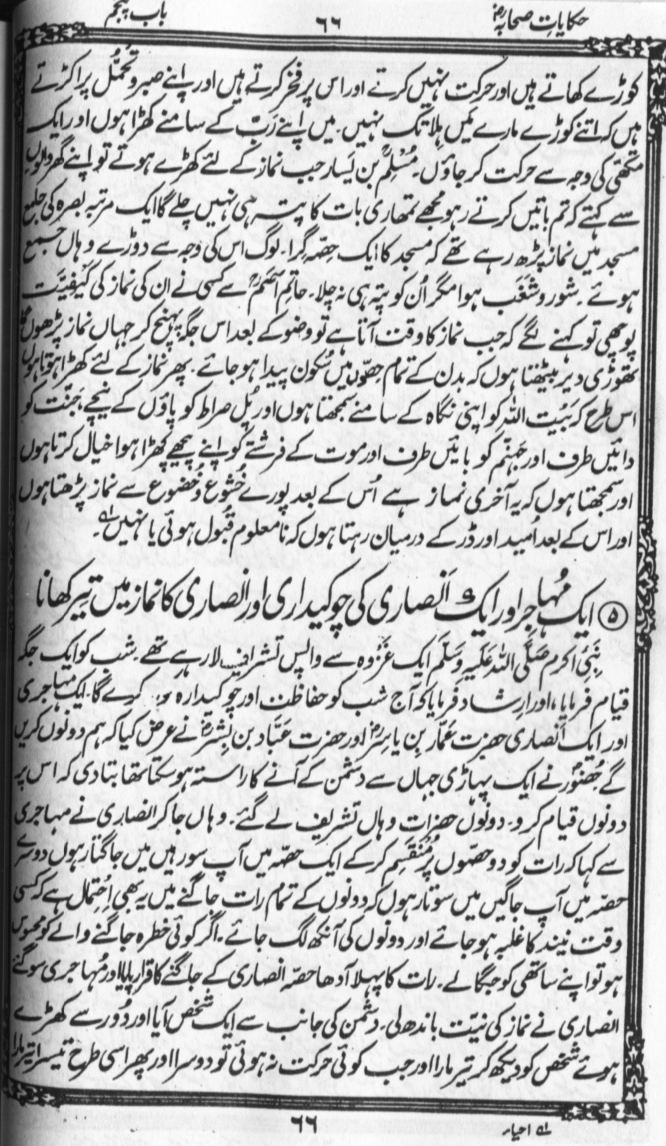 حکایاتِ صحابہؓ ۶۶ باب پنجم
کوڑے کھاتے ہیں اور حرکت نہیں کرتے اور اس پر فخر کرتے ہیں اور اپنے صبر و تحمُّل پر اکڑتے
ہیں کہ اتنے کوڑے مارے میں ہلا تک نہیں۔ میں اپنے رَبّ کے سامنے کھڑا ہوں اور ایک
مکھی کی وجہ سے حرکت کر جاؤں۔ مُسْلِم بن یسار جب نماز کے لئے کھڑے ہوتے تو اپنے گھر والوں
سے کہتے کہ تم باتیں کرتے رہو مجھے تمھاری بات کا پتہ ہی نہیں چلے گا ایک مرتبہ بصرہ کی جامع
مسجد میں نماز پڑھ رہے تھے کہ مسجد کا ایک حِصّہ گرا۔ لوگ اس کی وجہ سے دوڑے وہاں جمع
ہوئے۔ شور و شَغَب ہوا مگر اُن کو پتہ ہی نہ چلا۔ حاتمِ اَصَمؒ سے کسی نے ان کی نماز کی کَیْفِیَّت
پوچھی تو کہنے لگے کہ جب نماز کا وقت آتا ہے تو وضو کے بعد اس جگہ پہنچ کر جہاں نماز پڑھوں
تھوڑی دیر بیٹھتا ہوں کہ بدن کے تمام حِصّوں میں سُکون پیدا ہو جائے۔ پھر نماز کے لئے کھڑا ہوتا ہوں
اس طرح کہ بَیتُ اللہ کو اپنی نگاہ کے سامنے سمجھتا ہوں اور پُل صراط کو پاؤں کے نیچے، جنّت کو
دائیں طرف اور جہنّم کو بائیں طرف اور موت کے فرشتے کو اپنے پیچھے کھڑا ہوا خیال کرتا ہوں
اور سمجھتا ہوں کہ یہ آخری نماز ہے اُس کے بعد پورے خُشُوع و خُضُوع سے نماز پڑھتا ہوں
اور اس کے بعد اُمید اور ڈر کے درمیان رہتا ہوں کہ نا معلوم قبول ہوئی یا نہیں ؎۱۔
۵ ایک مُہاجر اور ایک انصاری کی چوکیداری اور انصاری کا نماز میں تیر کھانا
نبیِّ اکرم صَلَّی اللہُ عَلَیْہِ وَسَلَّم ایک غَزْوہ سے واپس تشریف لا رہے تھے۔ شب کو ایک جگہ
قیام فرمایا، اور ارشاد فرمایا کہ آج شب کو حفاظت اور چوکیدارہ کون کرے گا۔ ایک مہاجری
اور ایک انصاری حضرت عمّار بن یاسرؓ اور حضرت عَبّاد بن بِشرؓ نے عرض کیا کہ ہم دونوں کریں
گے حُضُورؐ نے ایک پہاڑی جہاں سے دشمن کے آنے کا راستہ ہو سکتا تھا بتا دی کہ اس پر
دونوں قیام کرو۔ دونوں حضرات وہاں تشریف لے گئے۔ وہاں جا کر انصاری نے مہاجری
سے کہا کہ رات کو دو حصوں پر مُنْقَسِم کر کے ایک حصّہ میں آپ سو رہیں میں جاگتا رہوں دوسرے
حصّہ میں آپ جاگیں میں سوتا رہوں کہ دونوں کے تمام رات جاگنے میں یہ بھی اِحتمال ہے کہ کسی
وقت نیند کا غلبہ ہو جائے اور دونوں کی آنکھ لگ جائے۔ اگر کوئی خطرہ جاگنے والے کو محسوس
ہو تو اپنے ساتھی کو جگا لے۔ رات کا پہلا آدھا حصّہ انصاری کے جاگنے کا قرار پایا اور مُہاجری سو گئے
انصاری نے نماز کی نیّت باندھ لی۔ دشمن کی جانب سے ایک شخص آیا اور دُور سے کھڑے
ہوئے شخص کو دیکھ کر تیر مارا اور جب کوئی حرکت نہ ہوئی تو دوسرا اور پھر اسی طرح تیسرا تیر مارا
؎۱ احیاء
۶۶